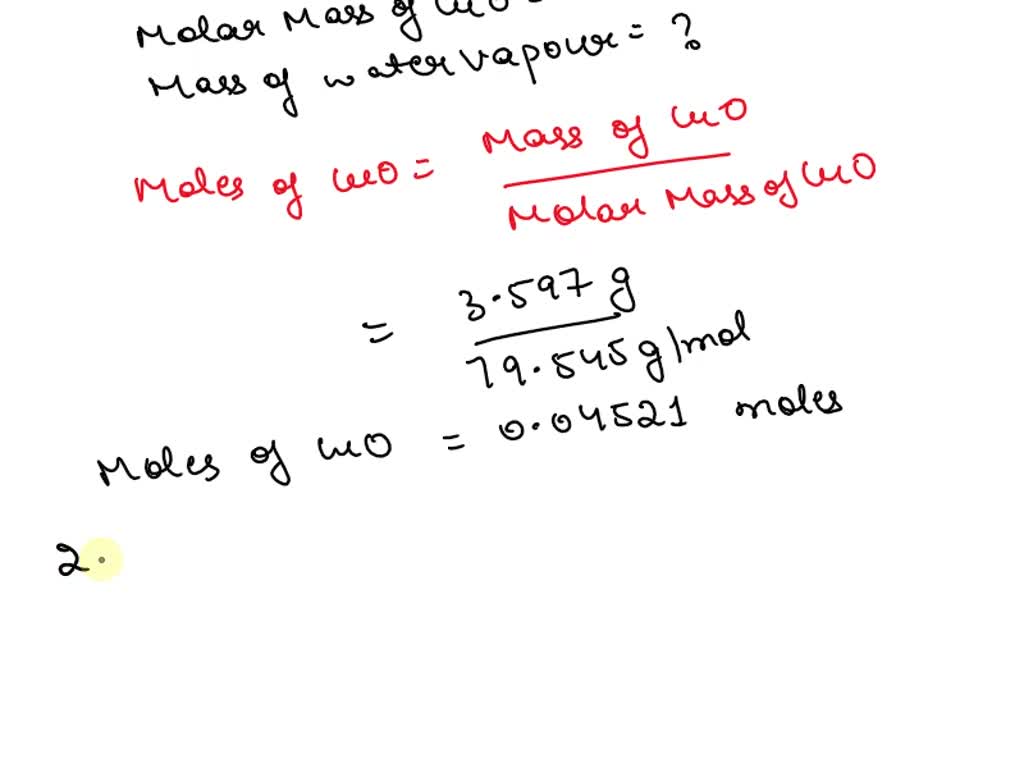 Molar Mass of CuO =
Mass of water vapour = ?
Moles of CuO = Mass of CuO
Molar Mass of CuO
= 3.597 g
79.545 g/mol
Moles of CuO = 0.04521 moles
2.